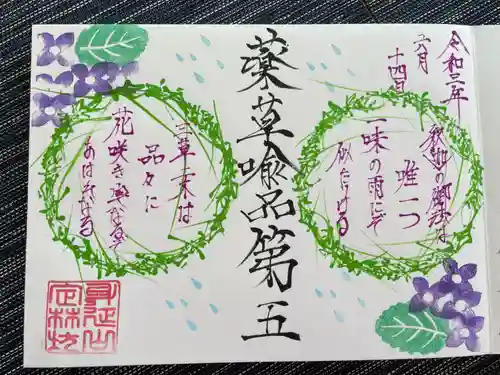 令和三年
六月
十四日
釈迦の御法は
唯一つ
一味の雨にぞ
似たける
薬草喩品第五
三草二木は
品々に
花咲き実なるぞ
あはれなる
身延山
定林坊